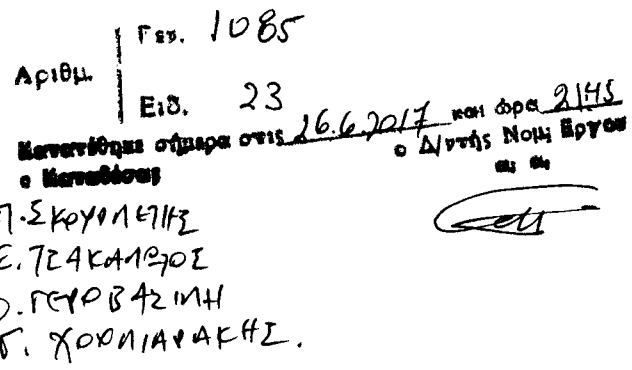 Αριθμ.
Γεν. 1085
Ειδ. 23
Κατατέθηκε σήμερα στις 26.6.2017 και ώρα 21:45
ο Καταθέσας ο Δ/ντής Νομ. Έργου
α. α.
Π. ΣΚΟΥΡΛΕΤΗΣ
Ε. ΤΣΑΚΑΛΩΤΟΣ
Ο. ΓΕΡΟΒΑΣΙΛΗ
Γ. ΧΟΥΛΙΑΡΑΚΗΣ.